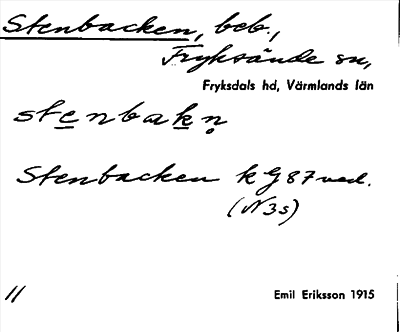 Stenbacken, beb.,
Fryksände sn,
Fryksdals hd, Värmlands län
stenbakn̥
Stenbacken k G 87 ved.
(N 3s)
11
Emil Eriksson 1915